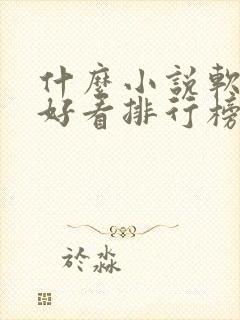 什麼小說軟
好看排行榜
於淼